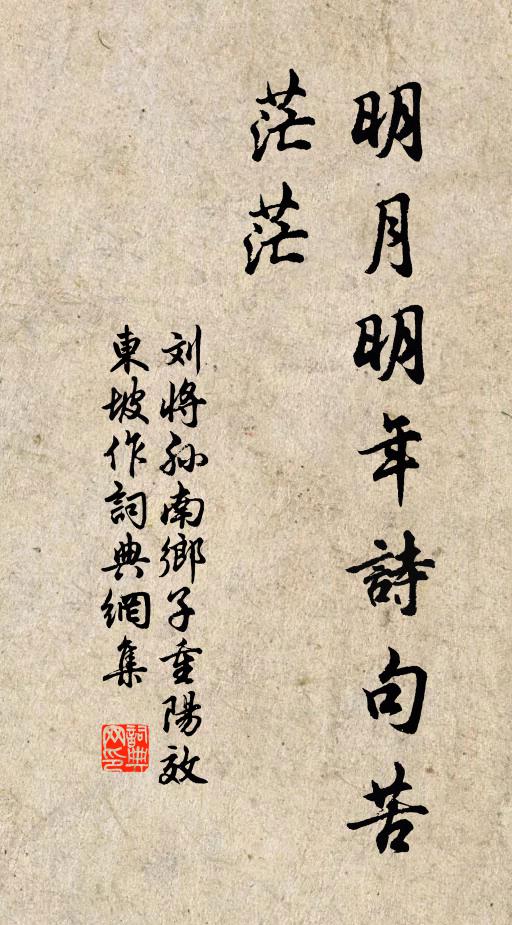 明月明年詩句苦
茫茫
刘将孙南鄉子重陽效
東坡作詞典網集
詞典网印